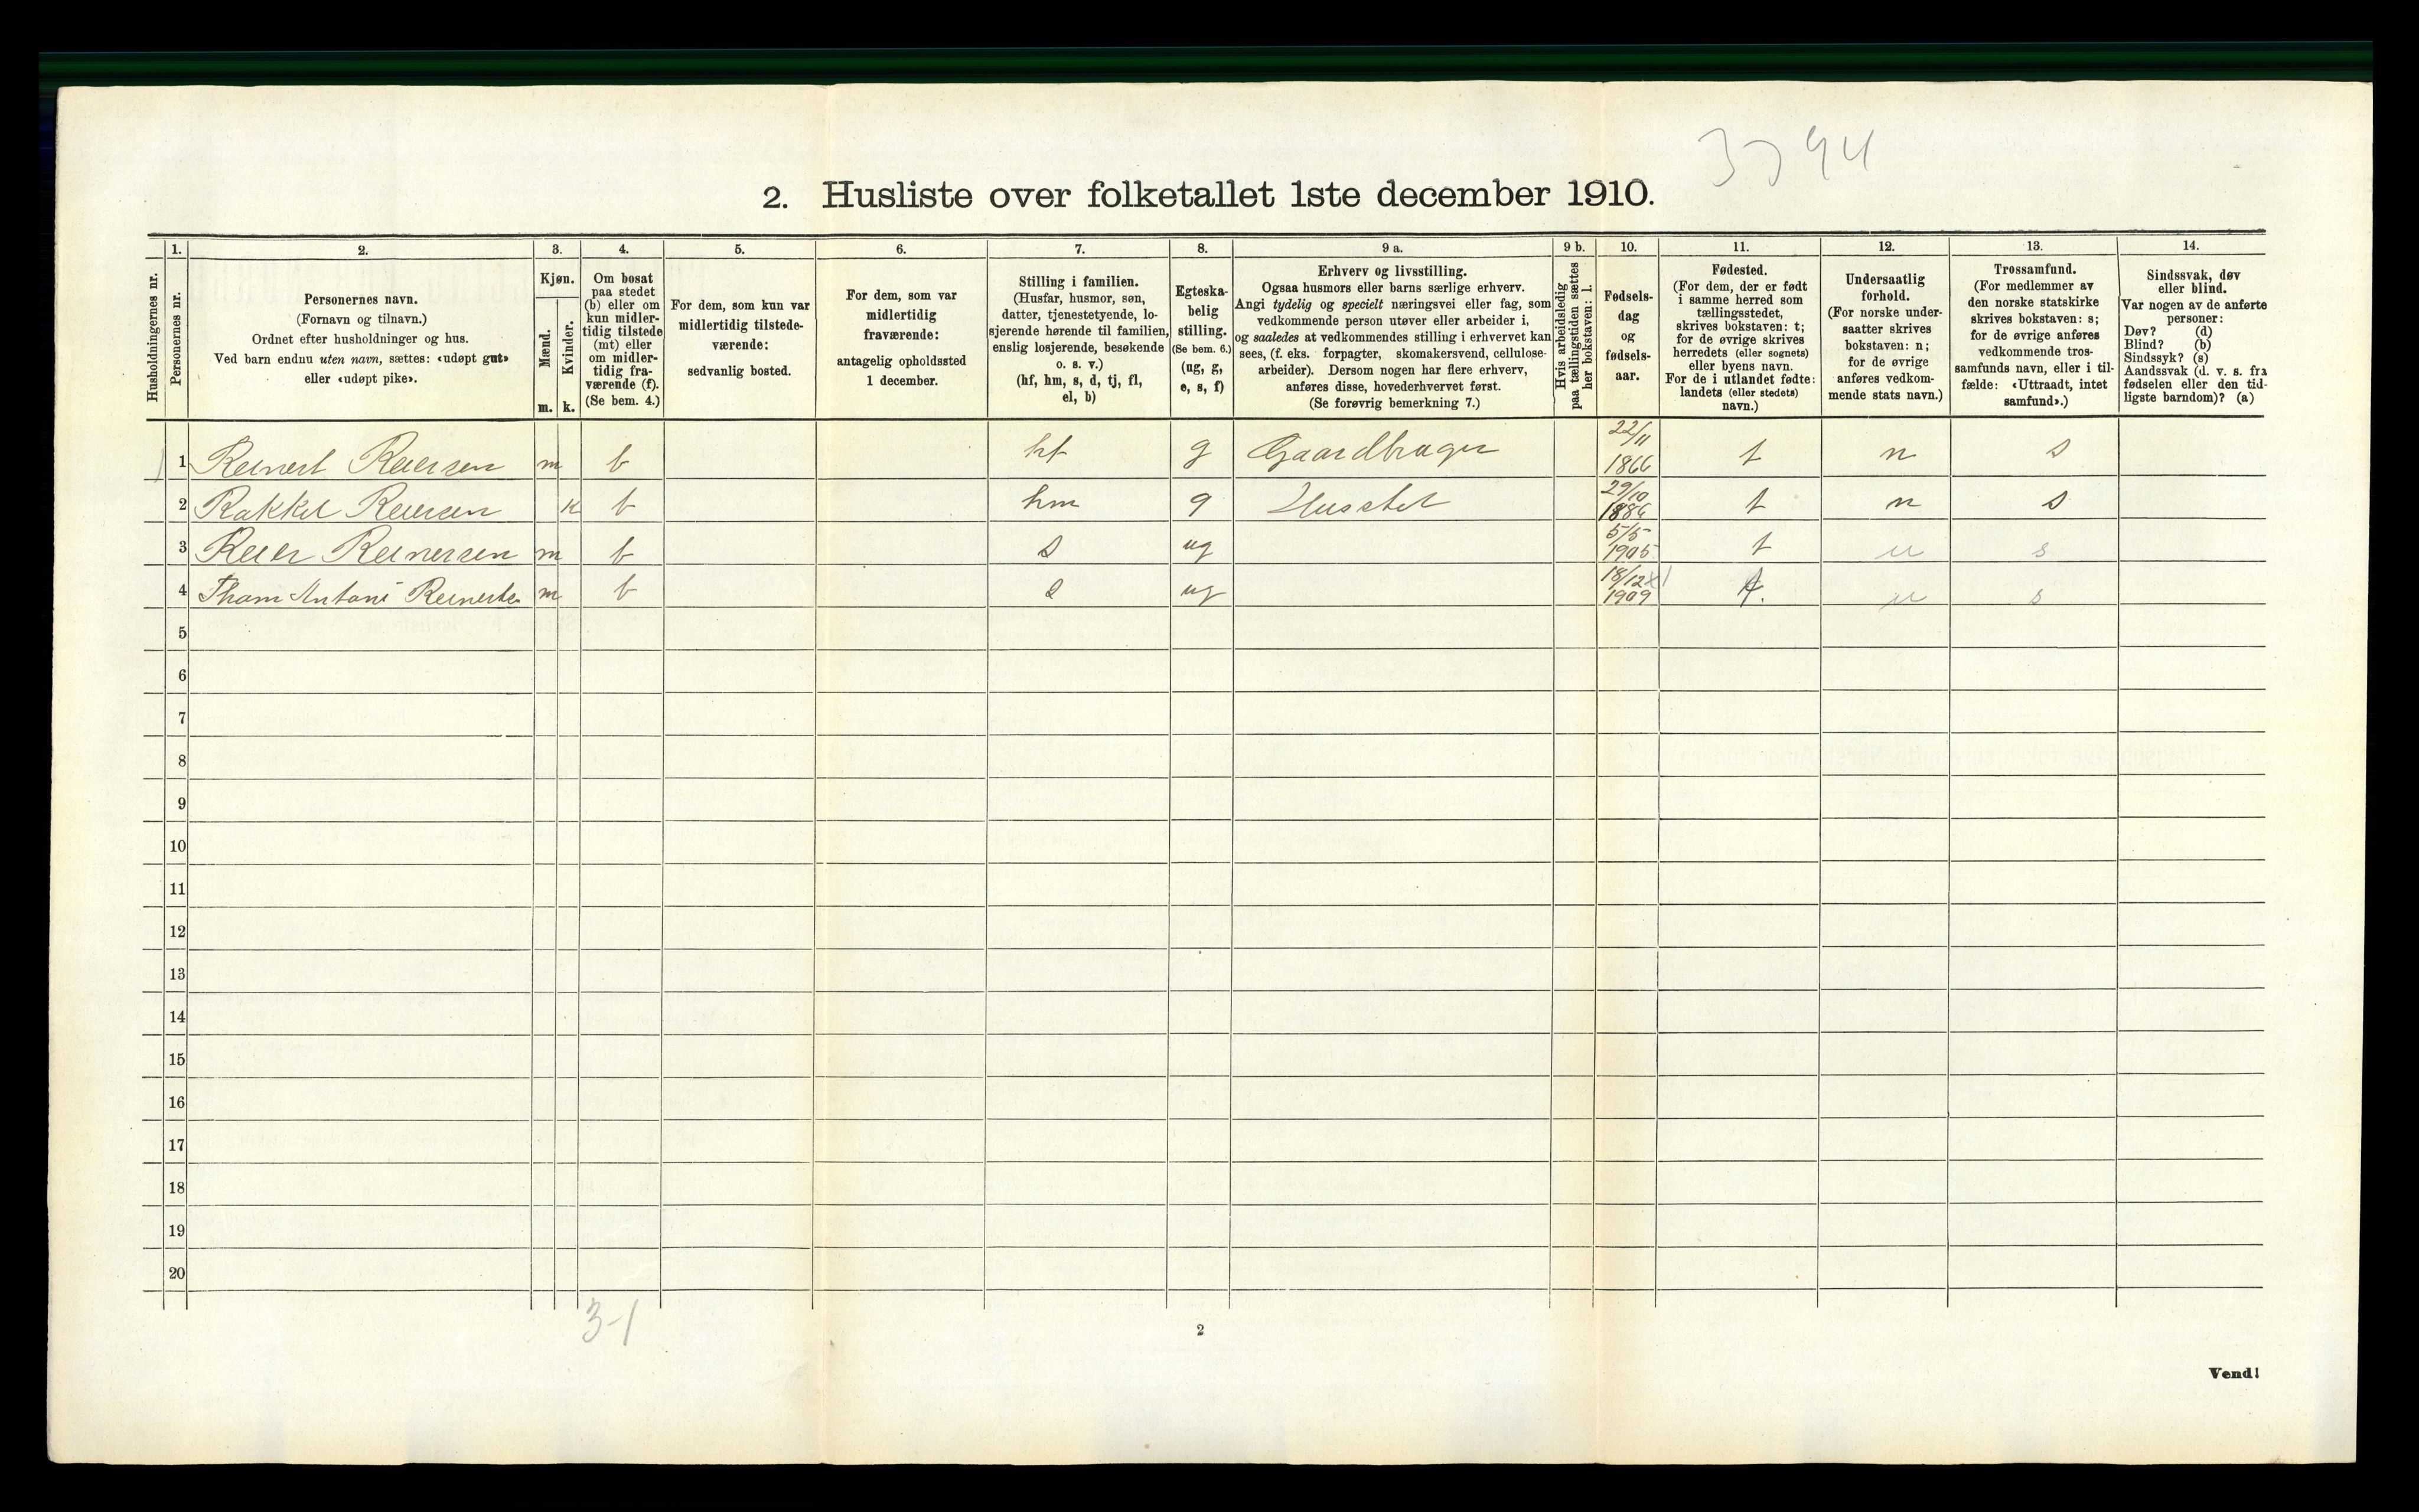 3794
2. Husliste over folketallet 1ste december 1910.
Husholdningernes nr.
1. Personernes nr.
2. Personernes navn.
(Fornavn og tilnavn.)
Ordnet efter husholdninger og hus.
Ved barn endnu uten navn, sættes: «udøpt gut»
eller «udøpt pike».
3. Kjøn.
Mænd. m.
Kvinder. k.
4. Om bosat
paa stedet
(b) eller om
kun midler-
tidig tilstede
(mt) eller
om midler-
tidig fra-
værende (f).
(Se bem. 4.)
5. For dem, som kun var
midlertidig tilstede-
værende:
sedvanlig bosted.
6. For dem, som var
midlertidig
fraværende:
antagelig opholdssted
1 december.
7. Stilling i familien.
(Husfar, husmor, søn,
datter, tjenestetyende, lo-
sjerende hørende til familien,
enslig losjerende, besøkende
o. s. v.)
(hf, hm, s, d, tj, fl,
el, b)
8. Egteska-
belig
stilling.
(Se bem. 6.)
(ug, g,
e, s, f)
9 a. Erhverv og livsstilling.
Ogsaa husmors eller barns særlige erhverv.
Angi tydelig og specielt næringsvei eller fag, som
vedkommende person utøver eller arbeider i,
og saaledes at vedkommendes stilling i erhvervet kan
sees, (f. eks. forpagter, skomakersvend, cellulose-
arbeider). Dersom nogen har flere erhverv,
anføres disse, hovederhvervet først.
(Se forøvrig bemerkning 7.)
9 b. Hvis arbeidsledig
paa tællingstiden sættes
her bokstaven: l.
10. Fødsels-
dag
og
fødsels-
aar.
11. Fødested.
(For dem, der er født
i samme herred som
tællingsstedet,
skrives bokstaven: t;
for de øvrige skrives
herredets (eller sognets)
eller byens navn.
For de i utlandet fødte:
landets (eller stedets)
navn.)
12. Undersaatlig
forhold.
(For norske under-
saatter skrives
bokstaven: n;
for de øvrige
anføres vedkom-
mende stats navn.)
13. Trossamfund.
(For medlemmer av
den norske statskirke
skrives bokstaven: s;
for de øvrige anføres
vedkommende tros-
samfunds navn, eller i til-
fælde: «Uttraadt, intet
samfund».)
14. Sindssvak, døv
eller blind.
Var nogen av de anførte
personer:
Døv? (d)
Blind? (b)
Sindssyk? (s)
Aandssvak (d. v. s. fra
fødselen eller den tid-
ligste barndom)? (a)
1 Reinert Reiersen m b hf g Gaardbruger 22/11 1866 t n s
2 Rakkel Reiersen k b hm g Husstel 29/10 1886 t n s
3 Reier Reinersen m b s ug 5/5 1905 t n s
4 Thom Antoni m b s ug 18/12 1909 t. n s
5
6
7
8
9
10
11
12
13
14
15
16
17
18
19
20
3-1
2
Vend!